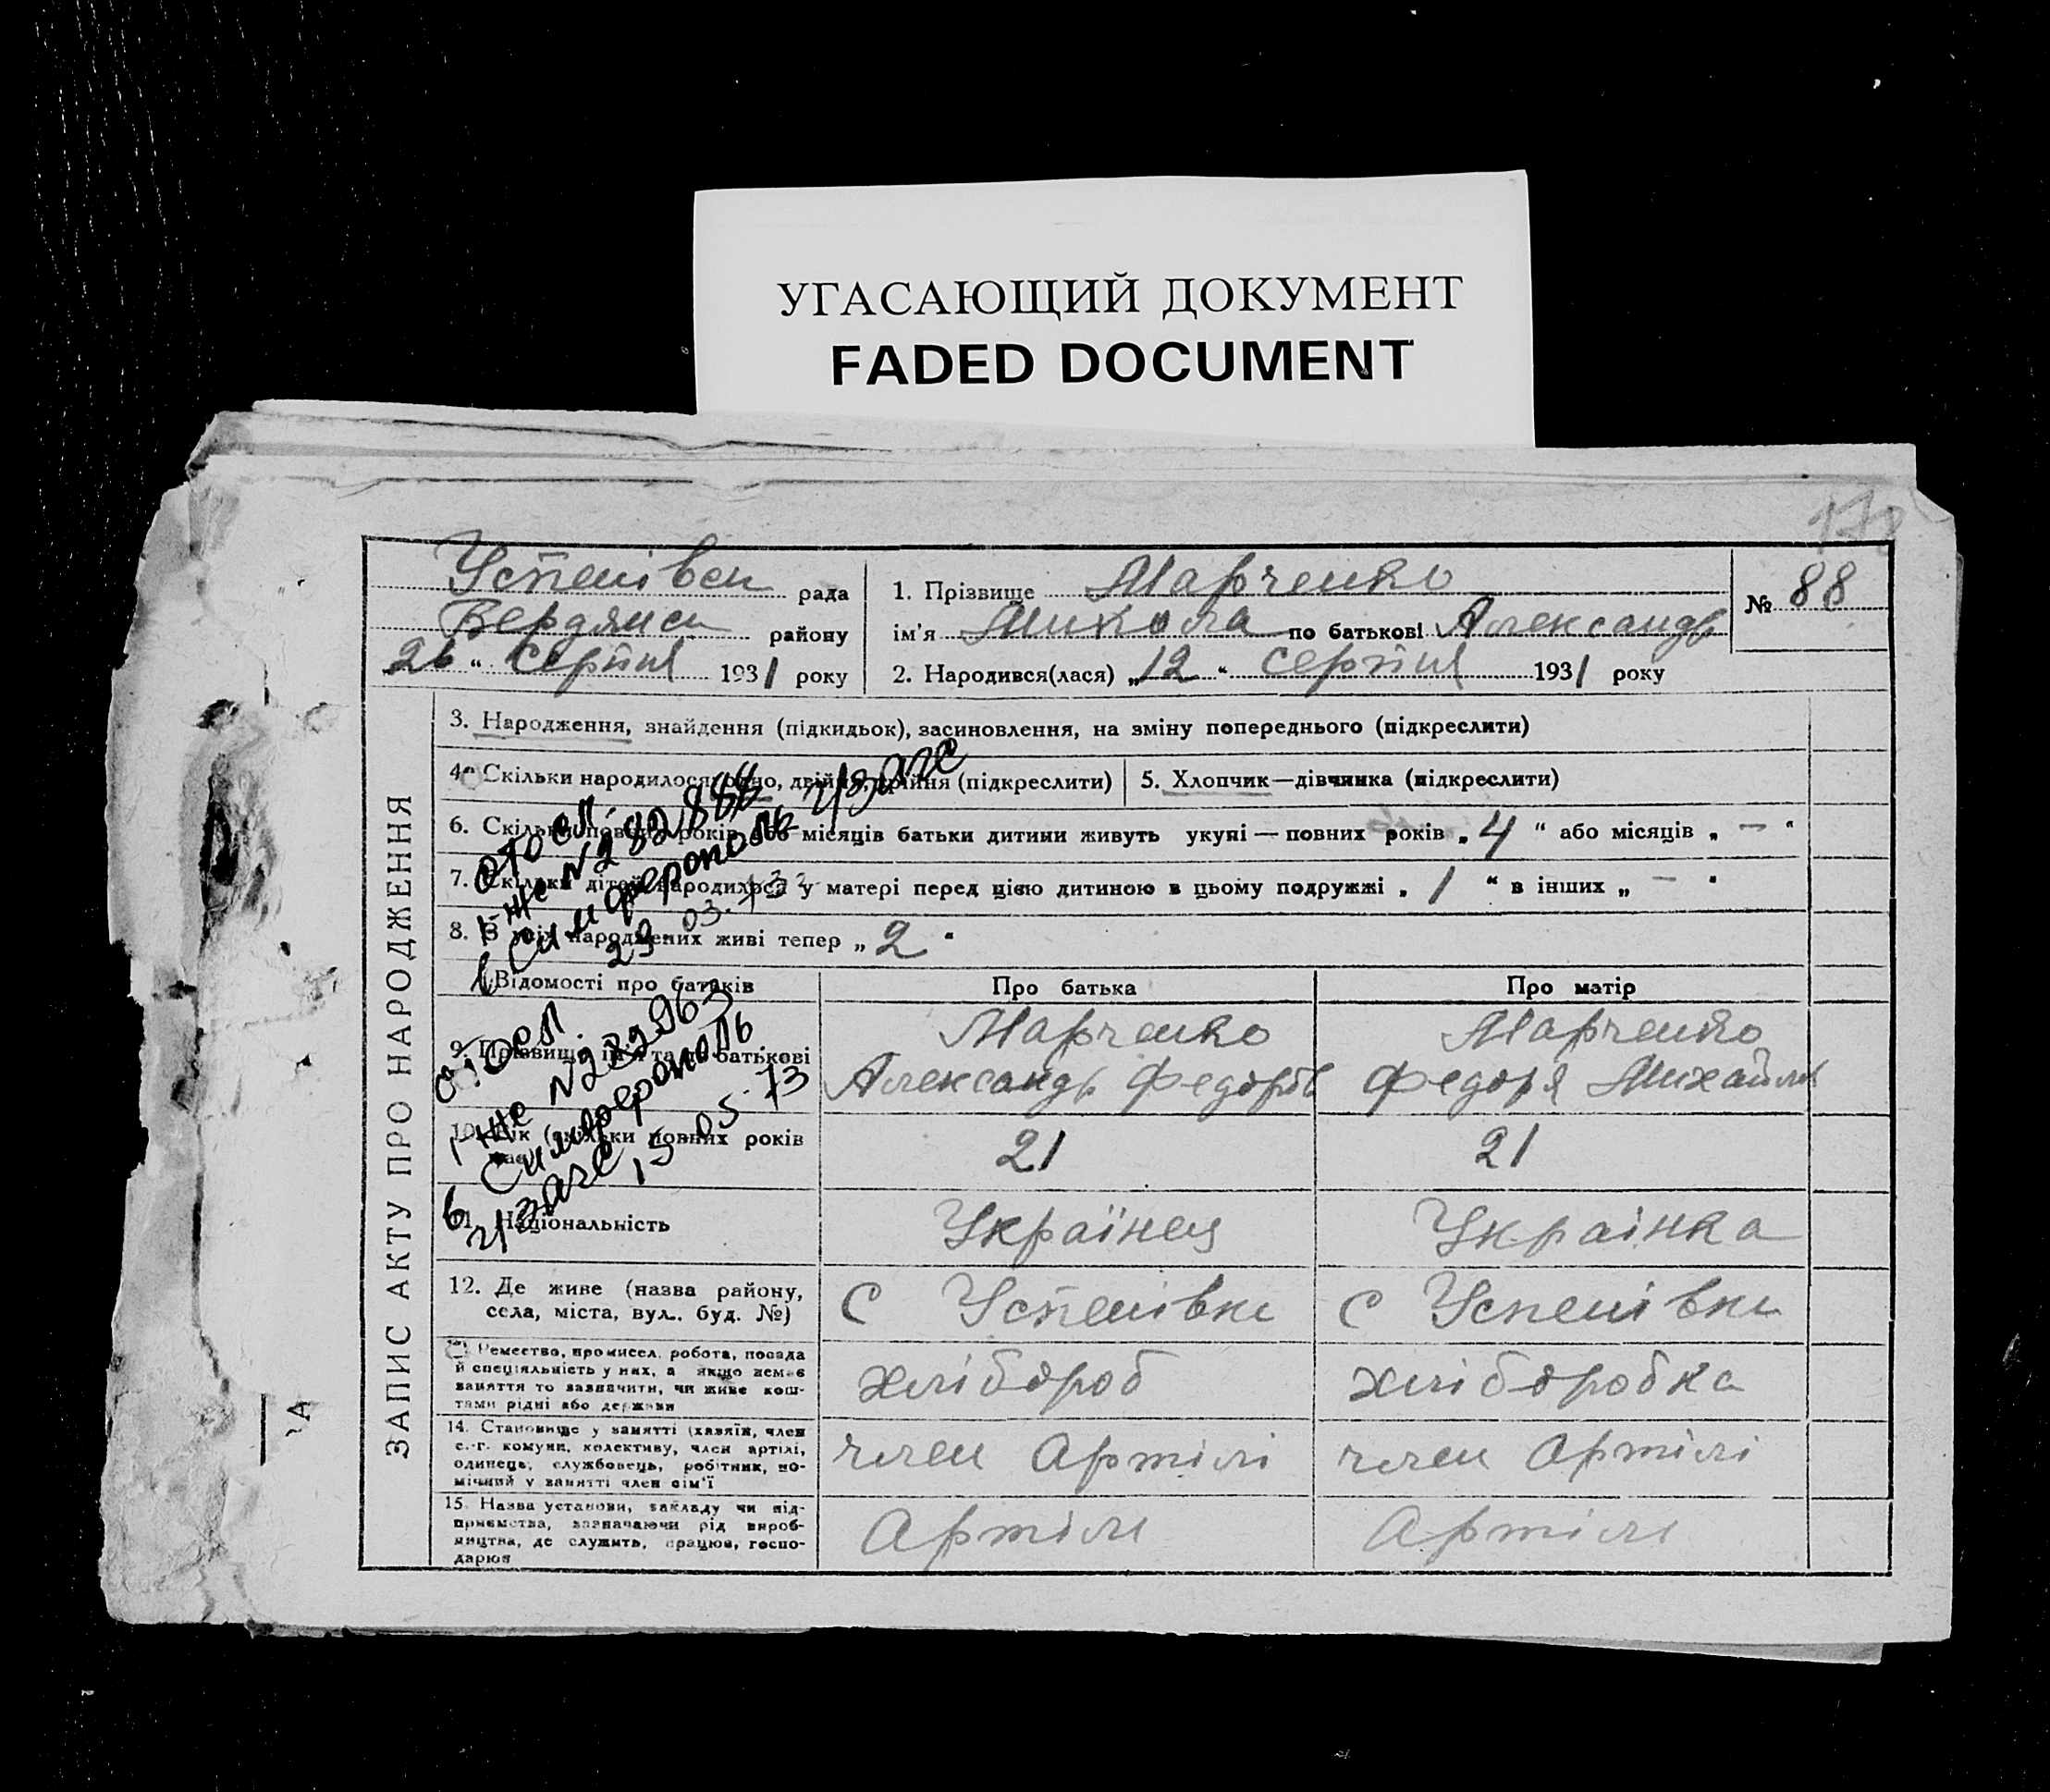 УГАСАЮЩИЙ ДОКУМЕНТ
FADED DOCUMENT
Успенівськ рада
Бердянськ району
26 “ серпня 1931 року
1. Прізвище Марченко
ім’я Микола по батькові Александр
2. Народився(лася) „12“ серпня 1931 року
№ 88
ЗАПИС АКТУ ПРО НАРОДЖЕННЯ
3. Народження, знайдення (підкидьок), засиновлення, на зміну попереднього (підкреслити)
4. Скільки народилося: одно, двійня, трійня (підкреслити)
5. Хлопчик—дівчинка (підкреслити)
6. Скільки повних років або місяців батьки дитини живуть укупі — повних років „4“ або місяців „—“
7. Скільки дітей народилося у матері перед цією дитиною в цьому подружжі „1“ в інших „—“
8. З усіх народжених живі тепер „2“
Відомості про батьків
Про батька
Про матір
9. Прізвище, ім’я та по батькові
Марченко
Александр Федоров
Марченко
Федоря Михайлов
10. Вік (скільки повних років має)
21
21
11. Національність
Українец
Українка
12. Де живе (назва району, села, міста, вул. буд. №)
с Успенівки
с Успенівки
Ремество, промисел, робота, посада
й спеціяльність у них, а якщо немає
заняття то зазначити, чи живе кош-
тами рідні або держави
хлібороб
хліборобка
14. Становище у занятті (хазяїн, член
с.-г. комуни, колективу, член артілі,
одинець, службовець, робітник, по-
мічний у занятті член сім’ї
член Артілі
член Артілі
15. Назва установи, закладу чи під-
приємства, зазначаючи рід вироб-
ництва, де служить, працює, госпо-
дарює
Артіль
Артіль
отосл.
I-же №282884
в Симферополь г/загс
29. 03. 73 г
отосл.
I-же №272963
в Симферополь
г/загс 15-05-73